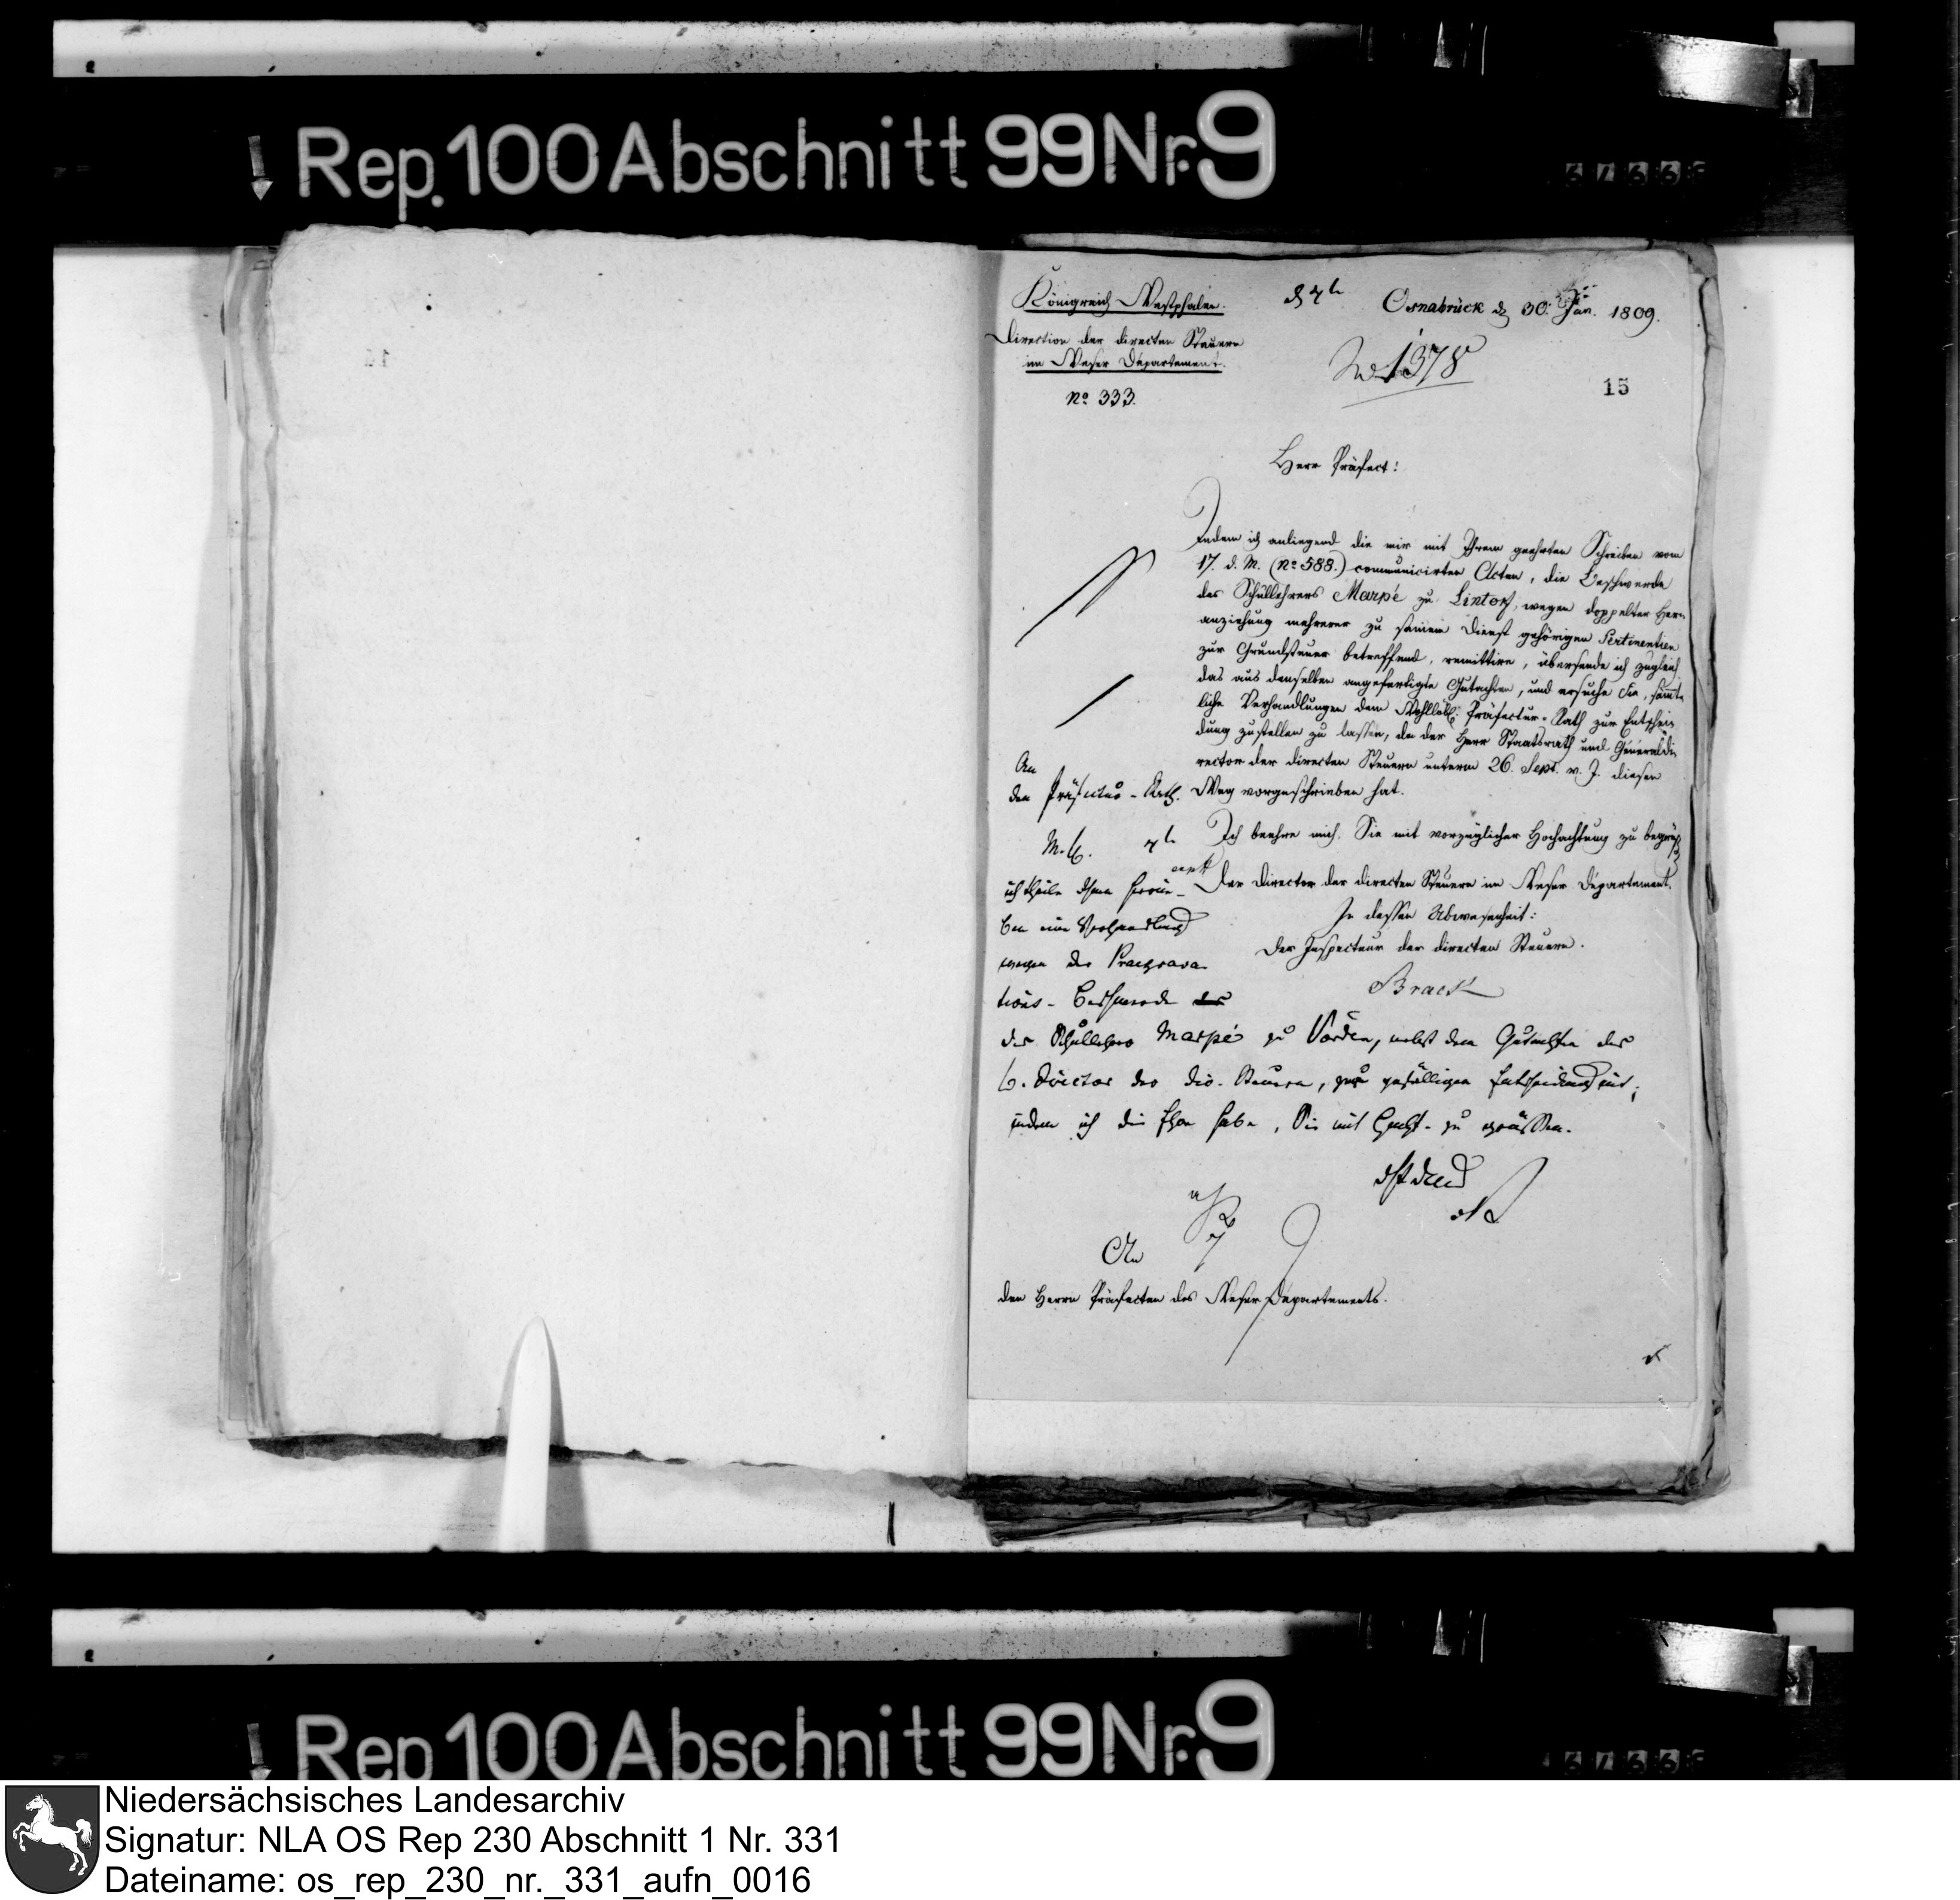 Rep. 100 Abschnitt 99 Nr. 9
Königreich Westphalen.
Direction der directen Steuern
im Weser Departement.
No 333.
Osnabrück d. 30. Jan. 1809.
1378
15
Herr Präfect!
Indem ich anliegend die mir mit Ihrem geehrten Schreiben vom
17. d. M. (No 588.) communicirten Acten, die Beschwerde
des Schullehrers Marpé zu Lintorf, wegen doppelter Her-
anziehung mehrerer zu seinem Dienst gehörigen Pertinentien
zur Grundsteuer betreffend, remittire, übersende ich zugleich
das aus denselben angefertigte Gutachten, und ersuche Sie, sämt-
liche Verhandlungen dem Wohllöbl. Präfectur-Rath zur Entschei-
dung zustellen zu lassen, da der Herr Staatsrath und Generaldi-
rector der directen Steuern unterm 26. Sept. v. J. diesen
Weg vorgeschrieben hat.
Ich beehre mich, Sie mit vorzüglicher Hochachtung zu begrüß
Der Director der directen Steuern im Weser Departement.
In dessen Abwesenheit:
Der Inspecteur der directen Steuern.
Brack
An
den Präfectur-Rath.
M. H.
ich theile Ihnen hierne-
ben eine Verhandlung
wegen der Praegrava-
tions-Beschwerde
des Schullehrers Marpé zu Vörden, nebst dem Gutachten des
H. Director der dir. Steuern, zur gefälligen Entscheidung mit,
indem ich die Ehre habe, Sie mit Hochacht. zu grüssen.
An
den Herrn Präfecten des Weser Departements.
Rep. 100 Abschnitt 99 Nr. 9
Niedersächsisches Landesarchiv
Signatur: NLA OS Rep 230 Abschnitt 1 Nr. 331
Dateiname: os_rep_230_nr._331_aufn_0016